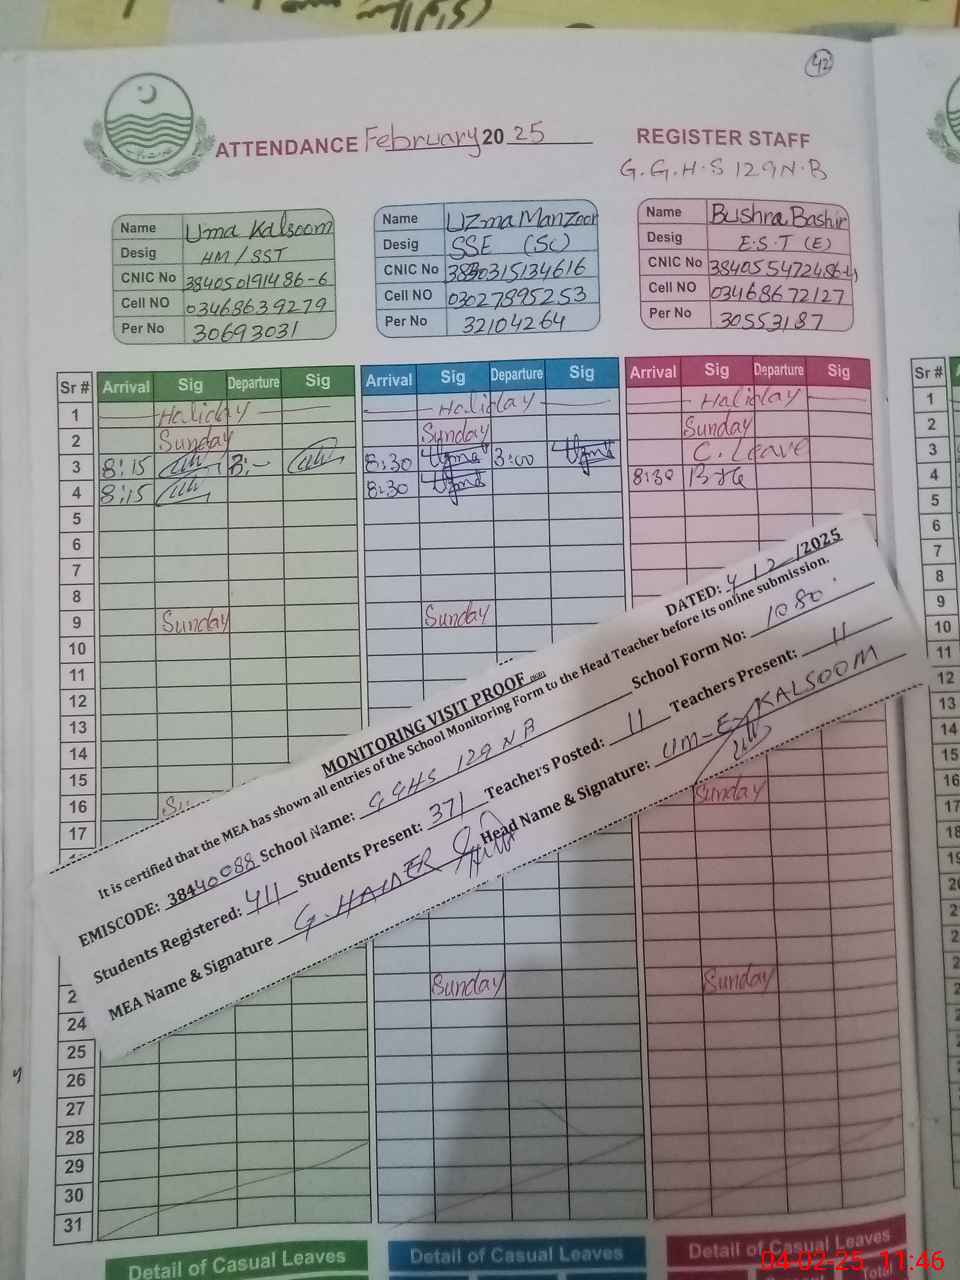 42
ATTENDANCE February 20 25 REGISTER STAFF
G.G.H.S 129 N.B
Name Uma Kalsoom
Desig HM / SST
CNIC No 384050191486-6
Cell NO 03468639279
Per No 30693031
Name Uzma Manzoor
Desig SSE (Sc)
CNIC No 3830315134616
Cell NO 03027895253
Per No 32104264
Name Bushra Bashir
Desig E.S.T (E)
CNIC No 384055472486-4
Cell NO 03468672127
Per No 30553187
Sr # Arrival Sig Departure Sig Arrival Sig Departure Sig Arrival Sig Departure Sig Sr #
1 Haliday Haliday Haliday 1
2 Sunday Sunday Sunday 2
3 8:15 3:- 8:30 Uzma 3:00 Uzma C. Leave 3
4 8:15 8:30 Uzma 8:30 4
5 5
6 6
7 7
8 8
9 Sunday Sunday 9
10 10
11 11
12 12
13 13
14 14
15 15
16 Su Sunday 16
17 17
MONITORING VISIT PROOF
DATED: 4/2-/2025
It is certified that the MEA has shown all entries of the School Monitoring Form to the Head Teacher before its online submission.
EMISCODE: 38440088 School Name: GGHS 129 NB School Form No: 1080
Students Registered: 411 Students Present: 371 Teachers Posted: 11 Teachers Present: 11
MEA Name & Signature G. HAIDER Head Name & Signature: UM-E-KALSOOM
Sunday Sunday
24
25
26
27
28
29
30
31
Detail of Casual Leaves Detail of Casual Leaves Detail of Casual Leaves
Total
04-02-25 11:46